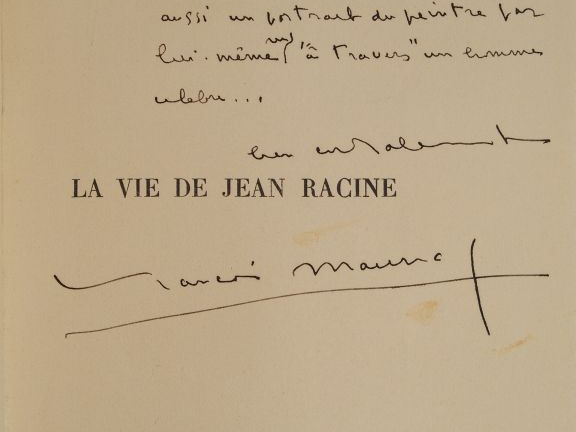 aussi un portrait du peintre par
lui-même, vu "à travers" un homme
célèbre...
bien cordialement
LA VIE DE JEAN RACINE
François Mauriac